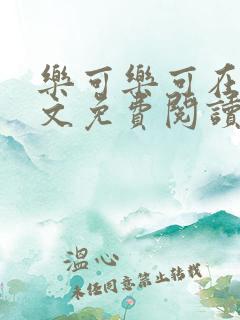 樂可樂可在
文免費閱讀
溫心
未經同意禁止轉載